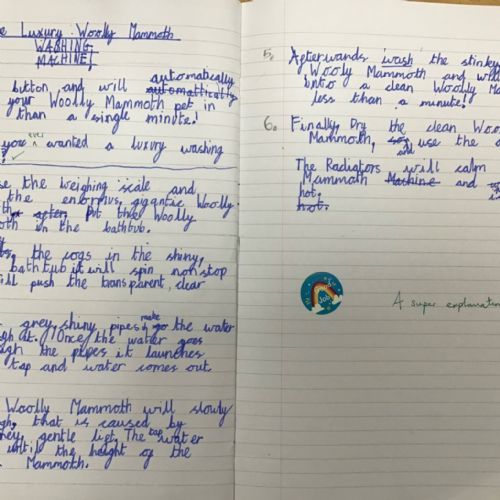 Luxury Woolly Mammoth
WASHING
MACHINE!
automatically
button and will automatically
your Woolly Mammoth pet in
than a single minute!
ever
you wanted a luxury washing
the weighing scale and
the enormus, gigantic Woolly
after, Put the Woolly
in the bathtub.
the cogs in the shiny,
bathtub it will spin non stop
will push the transparent, clear
make
grey, shiny pipes go the water
it. Once the water goes
the pipes it launches
tap and water comes out
Woolly Mammoth will slowly
that is caused by
gentle lift. The tap water
until the height of the
Mammoth.
5. Afterwards wash the stinky
Wooly Mammoth and will
into a clean Woolly
less than a minute!
6. Finally, Dry the clean
Mammoth, and use the
The Radiators will calm
Mammoth Machine and
hot.
hot.
A super explanation